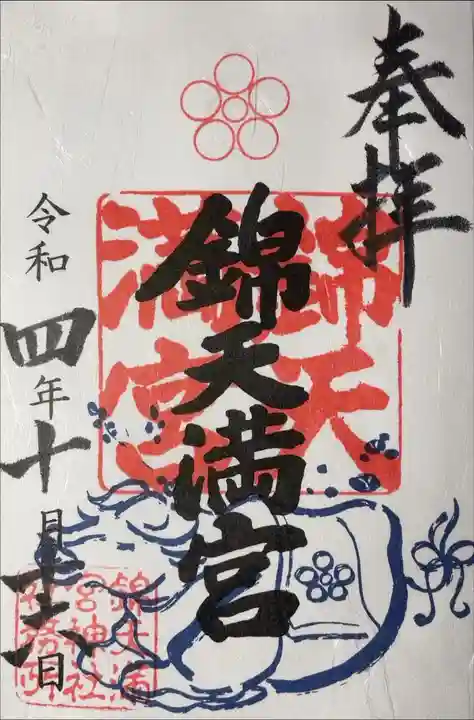 奉拝
錦天満宮
錦天
満宮
令和四年十月十六日
錦天満
宮神社
社務所